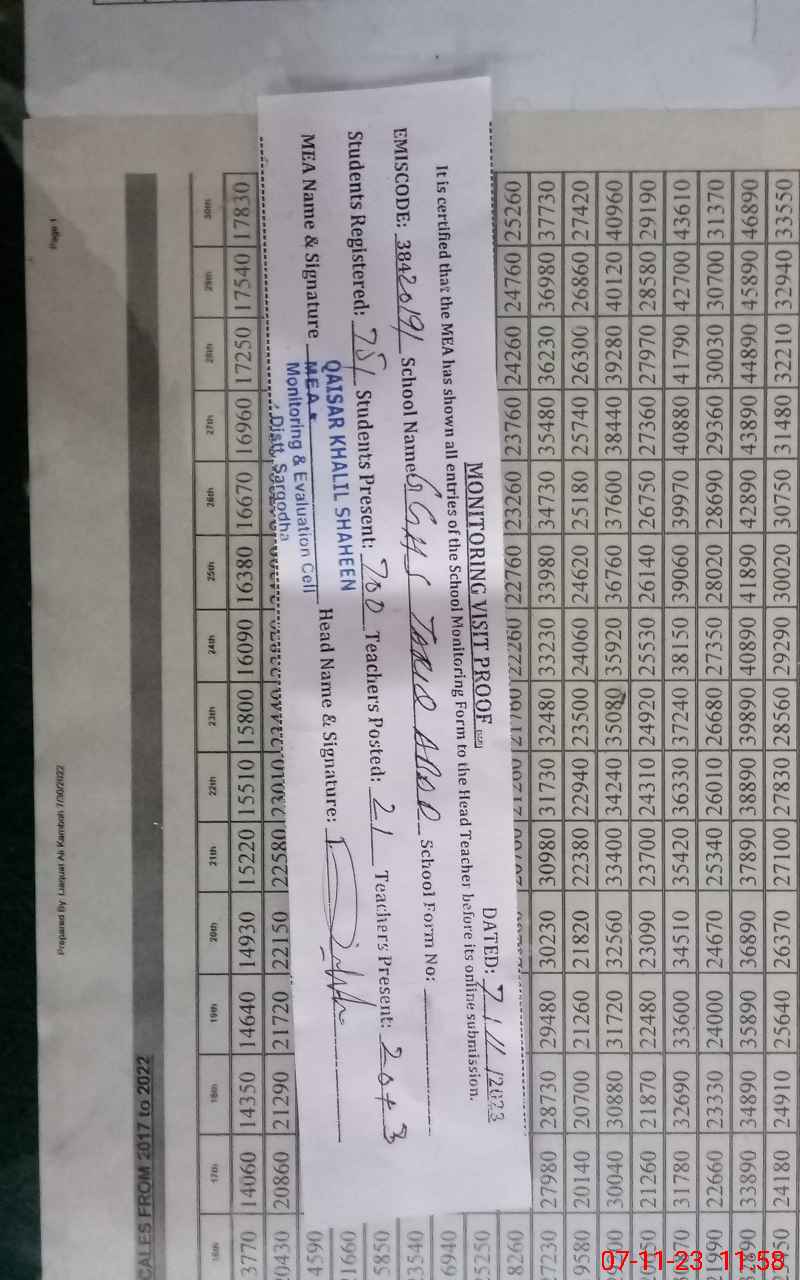 MONITORING VISIT PROOF DATED: 7/11/2023
It is certified that the MEA has shown all entries of the School Monitoring Form to the Head Teacher before its online submission.
EMISCODE: 38420191 School Name GGHS TARIQ ABAD School Form No:
Students Registered: 751 Students Present: 700 Teachers Posted: 21 Teachers Present: 20+3
MEA Name & Signature Head Name & Signature:
QAISAR KHALIL SHAHEEN
MEA
Monitoring & Evaluation Cell
Distt. Sargodha
Prepared By: Liaquat Ali Kamboh 7/30/2022 Page 1
CALES FROM 2017 to 2022
16th 17th 18th 19th 20th 21th 22th 23th 24th 25th 26th 27th 28th 29th 30th
3770 14060 14350 14640 14930 15220 15510 15800 16090 16380 16670 16960 17250 17540 17830
0430 20860 21290 21720 22150 22580 23010 23440
4590
1660
5850
3540
6940
5250
8260 22260 22760 23260 23760 24260 24760 25260
27230 27980 28730 29480 30230 30980 31730 32480 33230 33980 34730 35480 36230 36980 37730
9580 20140 20700 21260 21820 22380 22940 23500 24060 24620 25180 25740 26300 26860 27420
30040 30880 31720 32560 33400 34240 35080 35920 36760 37600 38440 39280 40120 40960
21260 21870 22480 23090 23700 24310 24920 25530 26140 26750 27360 27970 28580 29190
31780 32690 33600 34510 35420 36330 37240 38150 39060 39970 40880 41790 42700 43610
22660 23330 24000 24670 25340 26010 26680 27350 28020 28690 29360 30030 30700 31370
33890 34890 35890 36890 37890 38890 39890 40890 41890 42890 43890 44890 45890 46890
24180 24910 25640 26370 27100 27830 28560 29290 30020 30750 31480 32210 32940 33550
07-11-23 11:58